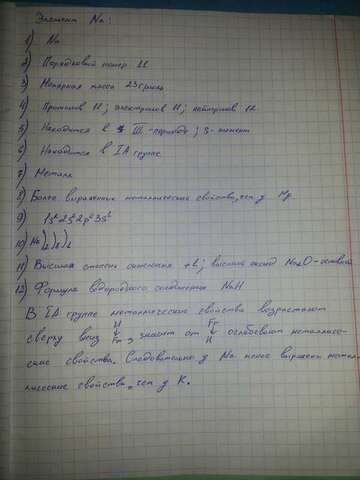 Элемент Na:
1) Na
2) Порядковый номер 11
3) Молярная масса 23 г/моль
4) Протонов 11; электронов 11; нейтронов 12
5) Находится в III-периоде; S-элемент
6) Находится в IA группе
7) Металл
8) Более выраженные металлические свойства, чем у Mg
9) 1s² 2s² 2p⁶ 3s¹
10) Na ) ) )
2 8 1
11) Высшая степень окисления +1; высший оксид Na₂O-основный
12) Формула водородного соединения NaH
В IA группе металлические свойства возрастают
сверху вниз H ↓ Fr, значит от Fr ↓ H ослабевают металличе-
ские свойства. Следовательно у Na менее выражены метал-
лические свойства, чем у K.